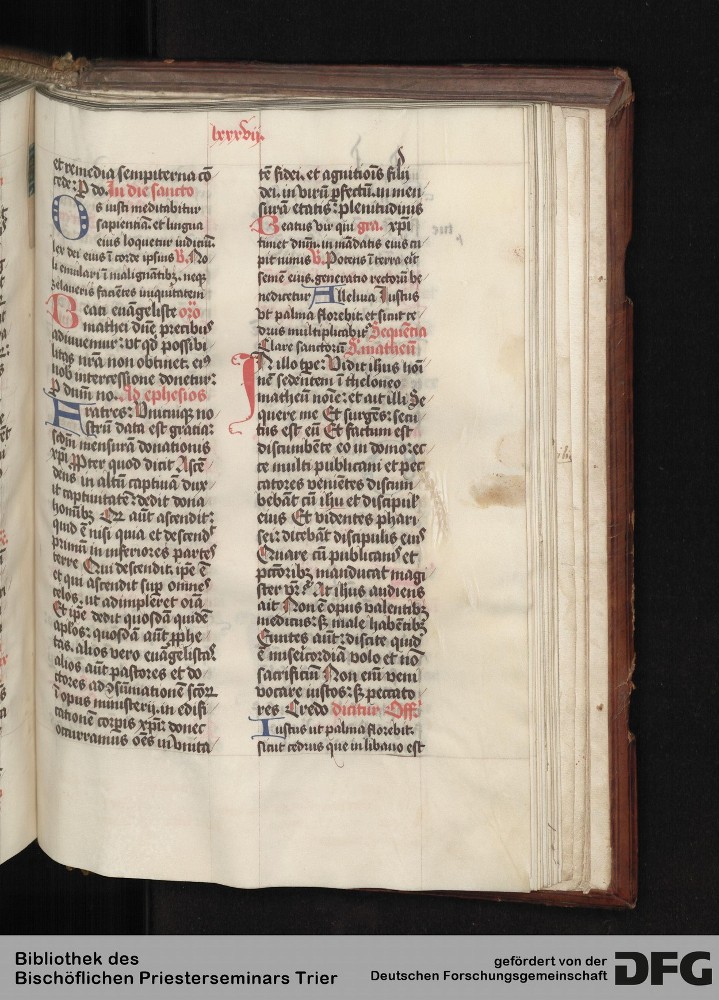 lxxxvij.
et remedia sempiterna cō
cede: P do. In die sancto
Os iusti meditabitur
sapientiā. et lingua
eius loquetur iudiciū.
lex dei eius ī corde ipsius V. No
li emulari ī malignātibꝫ. neqꝫ
zelaueris faciētes iniquitatem
Beati euāgeliste oro
mathei dn̄e precibus
adiuuemur: vt qd̕ possibi
litas nrā non obtinet. eiꝰ
nob intercessione donetur:
P dnūm no. Ad ephesios
Fratres: Vnicuiqꝫ no
strū data est gratia:
scdm̄ mensurā donationis
xp̄i. ꝓpter quod dicit Ascē
dens in altū captiuā dux
it captiuitatē: dedit dona
homībꝫ Qꝙ aūt ascendit:
quid ē nisi quia et descendᵗ
primū in inferiores partes
terre Qui descendit. ip̄e ē
et qui ascendit suꝑ omnes
celos. ut adimpleret oīa
Et ip̄e dedit quosdā quidē
aplos: quosdā aūt ꝓphe
tas. alios vero euāgelistas
alios aūt pastores et do
ctores ad ↄsūmationē scōꝝ
ī opus ministerij. in edifi
cationē corpis xp̄i: donec
occurramus oēs in vnita
tē fidei. et agnitiōis filij
dei. in virū ꝑfectū. in men
surā etatis: plenitudinis
Beatus vir qui gra. xp̄i
timet dnm̄. in mādatis eius cu
pit nimis V. Potens ī terra erit
semē eius. generatio rectorū be
nedicetur Alleluia Iustus
vt palma florebit. et sicut ce
drus multiplicabit Sequētia
Clare sanctorū S. matheū
In illo tp̄e: Vidit ihus hoī
nē sedentem ī theloneo
matheū noīe: et ait illi Se
quere me Et surgēs: secu
tus est eū Et factum est
discumbēte eo in domo: ec
ce multi publicani et pec
catores veniētes discum
bebāt cū ihu et discipulˀ
eius Et videntes phari
sei: dicebāt discipulis eius
Quare cū publicanis et
pctōribꝫ manducat magi
ster vr̄? At ihus audiens
ait Non ē opus valentibꝫ
medicus: sꝫ male habētibꝫ
Euntes aūt: discite quid
ē misericordiā volo et nō
sacrificiū Non enī veni
vocare iustos: sꝫ peccato
res Credo dicitur Off
Iustus ut palma florebit.
sicut cedrus que in libano est
Bibliothek des
Bischöflichen Priesterseminars Trier
gefördert von der
Deutschen Forschungsgemeinschaft
DFG